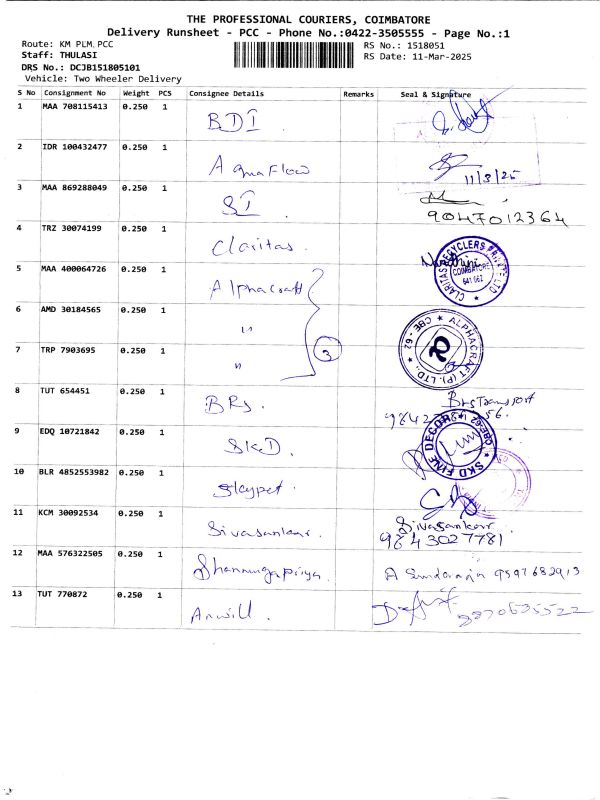 THE PROFESSIONAL COURIERS, COIMBATORE
Delivery Runsheet - PCC - Phone No.:0422-3505555 - Page No.:1
Route: KM PLM,PCC
RS No.: 1518051
Staff: THULASI
RS Date: 11-Mar-2025
DRS No.: DCJB151805101
Vehicle: Two Wheeler Delivery
S No Consignment No Weight PCS Consignee Details Remarks Seal & Signature
1 MAA 708115413 0.250 1 BDI
2 IDR 100432477 0.250 1 Aquaflow 11/3/25
3 MAA 869288049 0.250 1 SI 9047012364
4 TRZ 30074199 0.250 1 Claritas. CLARITAS RECYCLERS PRIVATE LTD COIMBATORE 641 062
5 MAA 400064726 0.250 1 Alphacraft
6 AMD 30184565 0.250 1 " ALPHACRAFT (P). LTD., ★ CBE - 62 ★
7 TRP 7903695 0.250 1 " 3
8 TUT 654451 0.250 1 BRS. BRS Transport
9 EDQ 10721842 0.250 1 SKD. SKD FINE DECOR ★ CBE-62 ★
10 BLR 4852553982 0.250 1 Skypet.
11 KCM 30092534 0.250 1 Sivasankar. Sivasankar. 9843027781
12 MAA 576322505 0.250 1 Shanmugapriya. 9597682913
13 TUT 770872 0.250 1 Anwill.